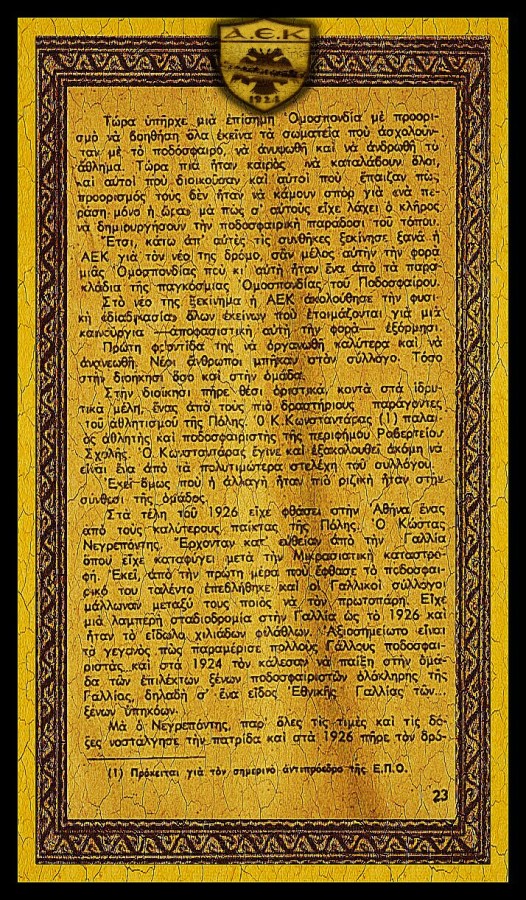 Α.Ε.Κ
1924
Τώρα ὑπῆρχε μιὰ ἐπίσημη Ὁμοσπονδία μὲ προορι-
σμὸ νὰ βοηθήση ὅλα ἐκεῖνα τὰ σωματεῖα ποὺ ἀσχολοῦν-
ταν μὲ τὸ ποδόσφαιρο, νὰ ἀνυψωθῆ καὶ νὰ ἀνδρωθῆ τὸ
ἄθλημα. Τώρα πιὰ ἦταν καιρὸς νὰ καταλάβουν ὅλοι,
καὶ αὐτοὶ ποὺ διοικοῦσαν καὶ αὐτοὶ ποὺ ἔπαιζαν πὼς
προορισμός τους δὲν ἦταν νὰ κάμουν σπὸρ γιὰ «νὰ πε-
ράση μόνο ἡ ὥρα» μὰ πὼς σ' αὐτοὺς εἶχε λάχει ὁ κλῆρος
νὰ δημιουργήσουν τὴν ποδοσφαιρικὴ παράδοσι τοῦ τόπου.
Ἔτσι, κάτω ἀπ' αὐτὲς τὶς συνθῆκες ξεκίνησε ξανὰ ἡ
ΑΕΚ γιὰ τὸν νέο της δρόμο, σὰν μέλος αὐτὴν τὴν φορὰ
μιᾶς Ὁμοσπονδίας ποὺ κι' αὐτὴ ἦταν ἕνα ἀπὸ τὰ παρα-
κλάδια τῆς παγκόσμιας Ὁμοσπονδίας τοῦ Ποδοσφαίρου.
Στὸ νέο της ξεκίνημα ἡ ΑΕΚ ἀκολούθησε τὴν φυσι-
κὴ «διαδικασία» ὅλων ἐκείνων ποὺ ἑτοιμάζονται γιὰ μιὰ
καινούργια —ἀποφασιστικὴ αὐτὴ τὴν φορὰ— ἐξόρμησι.
Πρώτη φροντίδα της νὰ ὀργανωθῆ καλύτερα καὶ νὰ
ἀνανεωθῆ. Νέοι ἄνθρωποι μπῆκαν στὸν σύλλογο. Τόσο
στὴν διοίκησι ὅσο καὶ στὴν ὁμάδα.
Στὴν διοίκησι πῆρε θέσι ὁριστικά, κοντὰ στὰ ἱδρυ-
τικὰ μέλη, ἕνας ἀπὸ τοὺς πιὸ δραστήριους παράγοντες
τοῦ ἀθλητισμοῦ τῆς Πόλης. Ὁ Κ.Κωνσταντάρας (1) παλαι-
ὸς ἀθλητὴς καὶ ποδοσφαιριστὴς τῆς περιφήμου Ροβερτείου
Σχολῆς. Ὁ Κωνσταντάρας ἔγινε καὶ ἐξακολουθεῖ ἀκόμη νὰ
εἶναι ἕνα ἀπὸ τὰ πολυτιμώτερα στελέχη τοῦ συλλόγου.
Ἐκεῖ ὅμως ποὺ ἡ ἀλλαγὴ ἦταν πιὸ ριζικὴ ἦταν στὴν
σύνθεσι τῆς ὁμάδος.
Στὰ τέλη τοῦ 1926 εἶχε φθάσει στὴν Ἀθήνα ἕνας
ἀπὸ τοὺς καλύτερους παίκτας τῆς Πόλης. Ὁ Κώστας
Νεγρεπόντης. Ἔρχονταν κατ' εὐθεῖαν ἀπὸ τὴν Γαλλία
ὅπου εἶχε καταφύγει μετὰ τὴν Μικρασιατικὴ καταστρο-
φή. Ἐκεῖ, ἀπὸ τὴν πρώτη μέρα ποὺ ἔφθασε τὸ ποδοσφαι-
ρικό του ταλέντο ἐπεβλήθηκε καὶ οἱ Γαλλικοὶ σύλλογοι
μάλλωναν μεταξύ τους ποιὸς νὰ τὸν πρωτοπάρη. Εἶχε
μιὰ λαμπερὴ σταδιοδρομία στὴν Γαλλία ὣς τὸ 1926 καὶ
ἦταν τὸ εἴδωλο χιλιάδων φιλάθλων. Ἀξιοσημείωτο εἶναι
τὸ γεγονὸς πὼς παραμέρισε πολλοὺς Γάλλους ποδοσφαι-
ριστὰς...καὶ στὰ 1924 τὸν κάλεσαν νὰ παίξη στὴν ὁμά-
δα τῶν ἐπιλέκτων ξένων ποδοσφαιριστῶν ὁλόκληρης τῆς
Γαλλίας, δηλαδὴ σ' ἕνα εἶδος Ἐθνικῆς Γαλλίας τῶν...
ξένων ὑπηκόων.
Μὰ ὁ Νεγρεπόντης, παρ' ὅλες τὶς τιμὲς καὶ τὶς δό-
ξες νοστάλγησε τὴν πατρίδα καὶ στὰ 1926 πῆρε τὸν δρό-
(1) Πρόκειται γιὰ τὸν σημερινὸ ἀντιπρόεδρο τῆς Ε.Π.Ο.
23